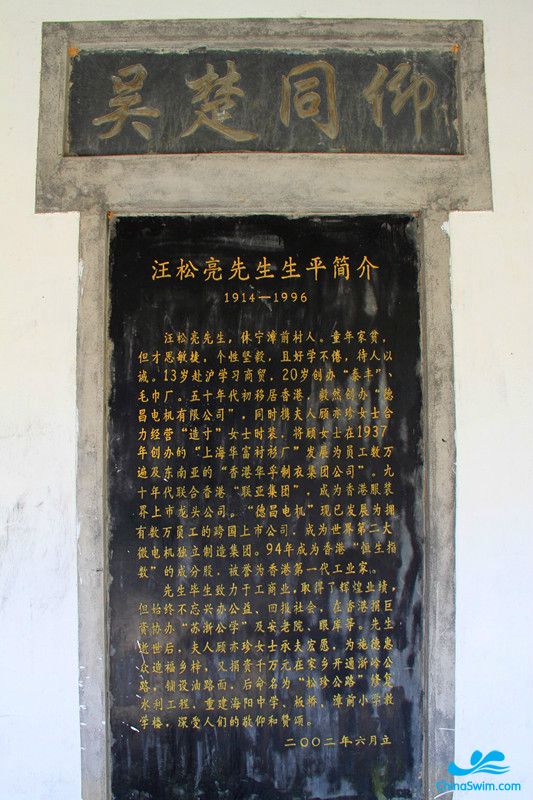 吴楚同仰
汪松亮先生生平简介
1914—1996
汪松亮先生，休宁漳前村人。童年家贫，
但才思敏捷，个性坚毅，且好学不倦，待人以
诚。13岁赴沪学习商贸，20岁创办“泰丰”、
毛巾厂。五十年代初移居香港，毅然创办“德
昌电机有限公司”，同时携夫人顾亦珍女士合
力经营“造寸”女士时装，将顾女士在1937
年创办的“上海华富衬衫厂”发展为员工数万
遍及东南亚的“香港华孚制衣集团公司”。九
十年代联合香港“联亚集团”，成为香港服装
界上市龙头公司。“德昌电机”现已发展为拥
有数万员工的跨国上市公司，成为世界第二大
微电机独立制造集团。94年成为香港“恒生指
数”的成分股，被誉为香港第一代工业家。
先生毕生致力于工商业，取得了辉煌业绩，
但始终不忘兴办公益、回报社会，在香港捐巨
资协办“苏浙公学”及安老院、眼库等。先生
逝世后，夫人顾亦珍女士承夫宏愿，为施德惠
众造福乡梓，又捐资千万元在家乡开通浙岭公
路，铺设油路面，后命名为“松珍公路”修复
水利工程，重建海阳中学、板桥、漳前小学教
学楼，深受人们的敬仰和赞颂。
二〇〇二年六月立
ChinaSwim.com